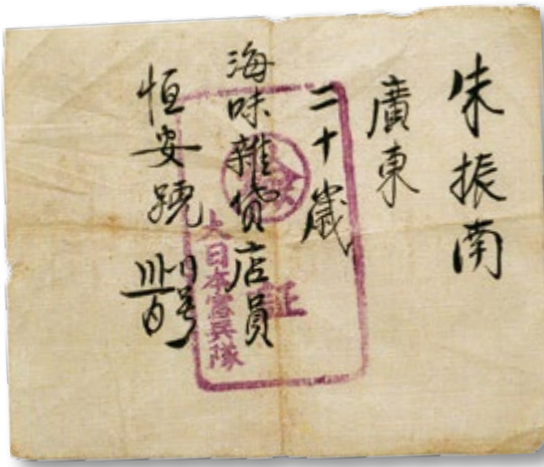 朱振南
廣東
二十歳
海味雜貨店員
恒安號
檢
証
大日本憲兵隊